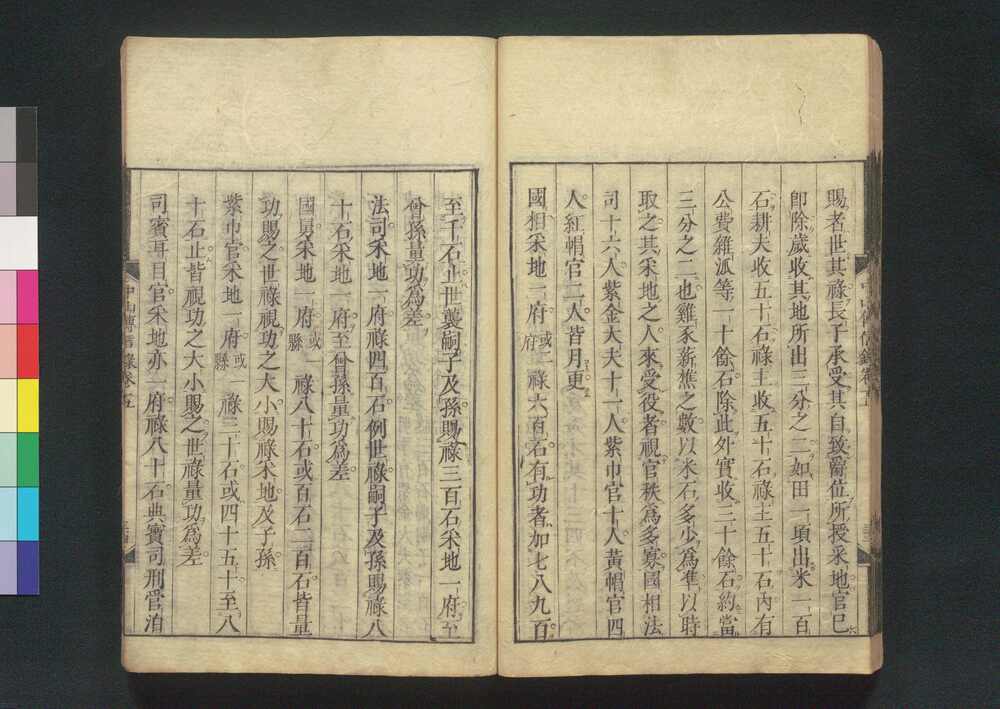 賜者世其祿長子承受其自致爵位所授采地官已
卽除歲收其地所出三分之二如田一頃出米一百
石耕夫收五十石祿主收五十石祿主五十石內有
公費雜派等一十餘石除此外實收三十餘石約當
三分之二也雞豕薪樵之數以米石多少爲準以時
取之其采地之人來受役者視官秩爲多寡國相法
司十六人紫金大夫十一人紫巾官十人黃帽官四
人紅帽官二人皆月更
國相采地一府或二府祿六百石有功者加七八九百
中山傳信錄卷五
至千石止世襲嗣子及孫賜祿三百石采地一府至
曾孫量功爲差
法司采地一府祿四百石例世祿嗣子及孫賜祿八
十石采地一府至曾孫量功爲差
國舅采地一府或一縣祿八十石或百石二百石皆量
功賜之世祿視功之大小賜祿采地及子孫
紫巾官采地一府或一縣祿三十石或四十五十至八
十石止皆視功之大小賜之世祿量功爲差
司賓耳目官采地亦一府祿八十石典寶司刑官泊
中山傳信錄卷五